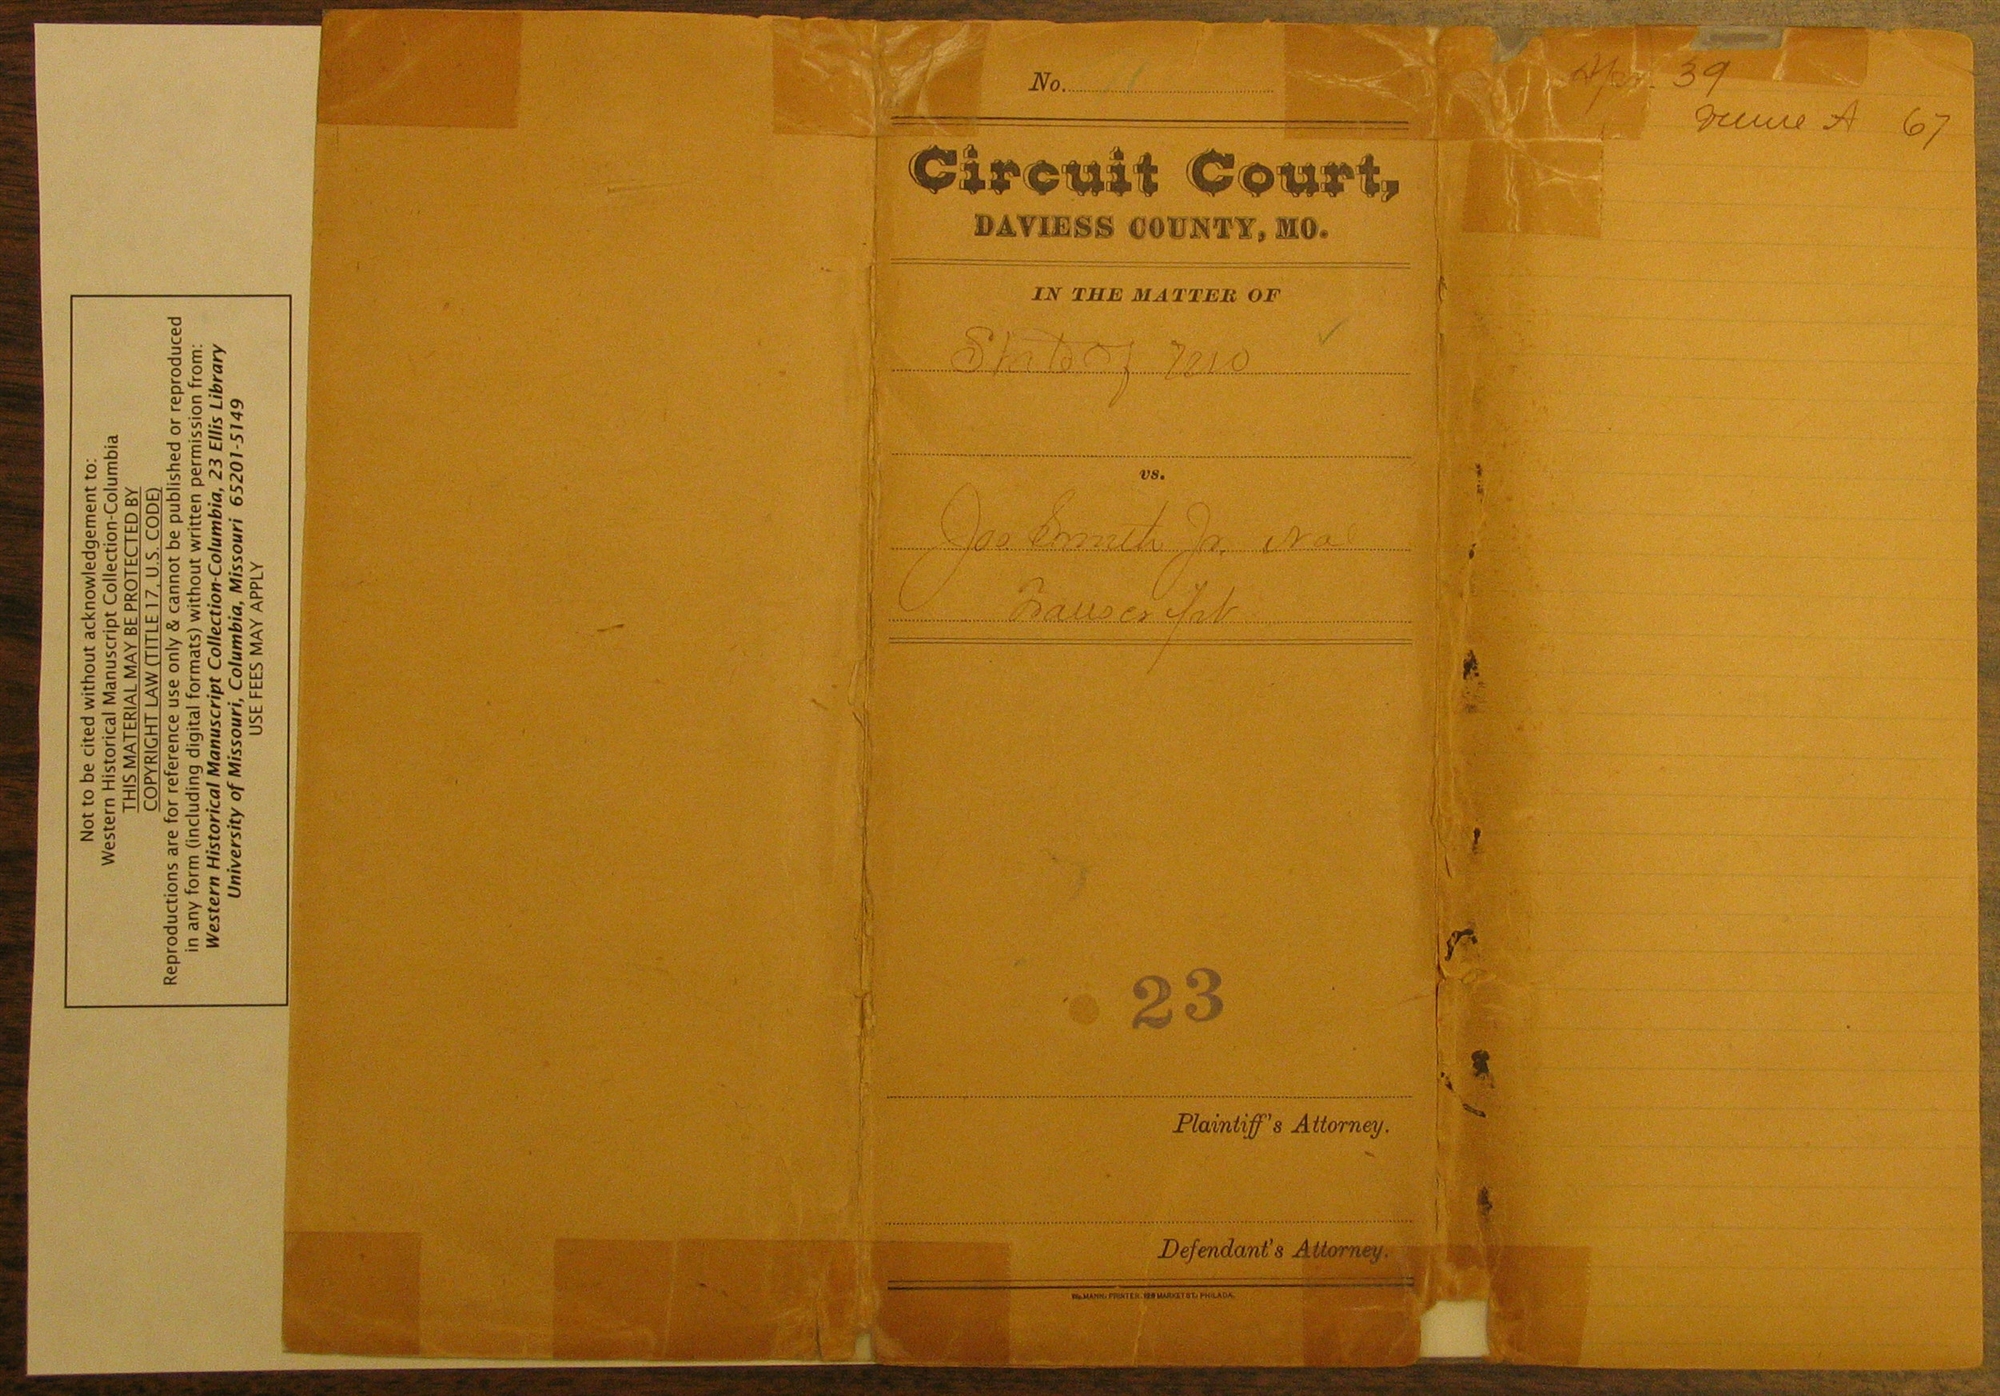 Not to be cited without acknowledgement to:
Western Historical Manuscript Collection-Columbia
THIS MATERIAL MAY BE PROTECTED BY
COPYRIGHT LAW (TITLE 17, U.S. CODE)
Reproductions are for reference use only & cannot be published or reproduced
in any form (including digital formats) without written permission from:
Western Historical Manuscript Collection-Columbia, 23 Ellis Library
University of Missouri, Columbia, Missouri 65201-5149
USE FEES MAY APPLY
No.
Circuit Court,
DAVIESS COUNTY, MO.
IN THE MATTER OF
State of Mo
vs.
Jos Smith Jr.
Transcript
23
Plaintiff's Attorney.
Defendant's Attorney.
WM. MANN, PRINTER, 529 MARKET ST., PHILADA.
Apr. 39
A 67